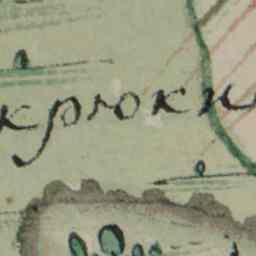 крюки